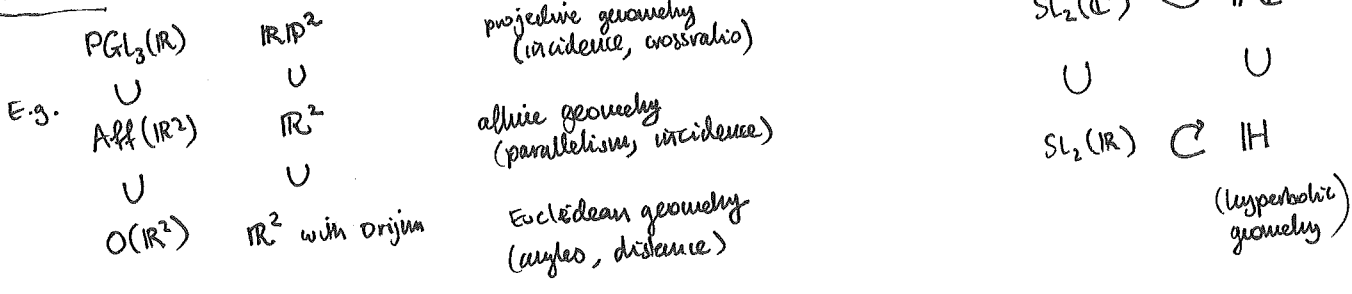 PGL₃(ℝ) ℝP² projective geometry
(incidence, crossratio)
∪ ∪
E.g. Aff(ℝ²) ℝ² affine geometry
(parallelism, incidence)
∪ ∪
O(ℝ²) ℝ² with origin Euclidean geometry
(angles, distance)
SL₂(ℂ)
∪ ∪
SL₂(ℝ) ↻ ℍ
(hyperbolic
geometry)